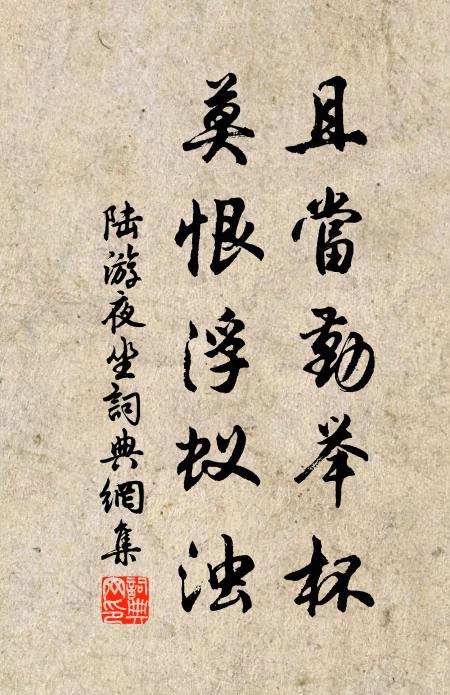 且當勤举杯
莫恨浮蚁浊
陆游夜坐詞典網集
詞典网印